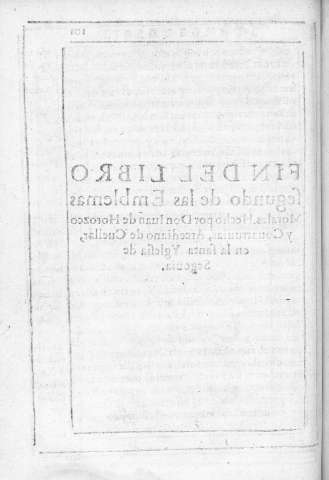 101
FIN DEL LIBRO
ſegundo de las Emblemas
Morales. Hecho por Don Iuan de Horozco
y Couarruuias, Arcediano de Cuellar,
en la ſanta Ygleſia de
Segouia.